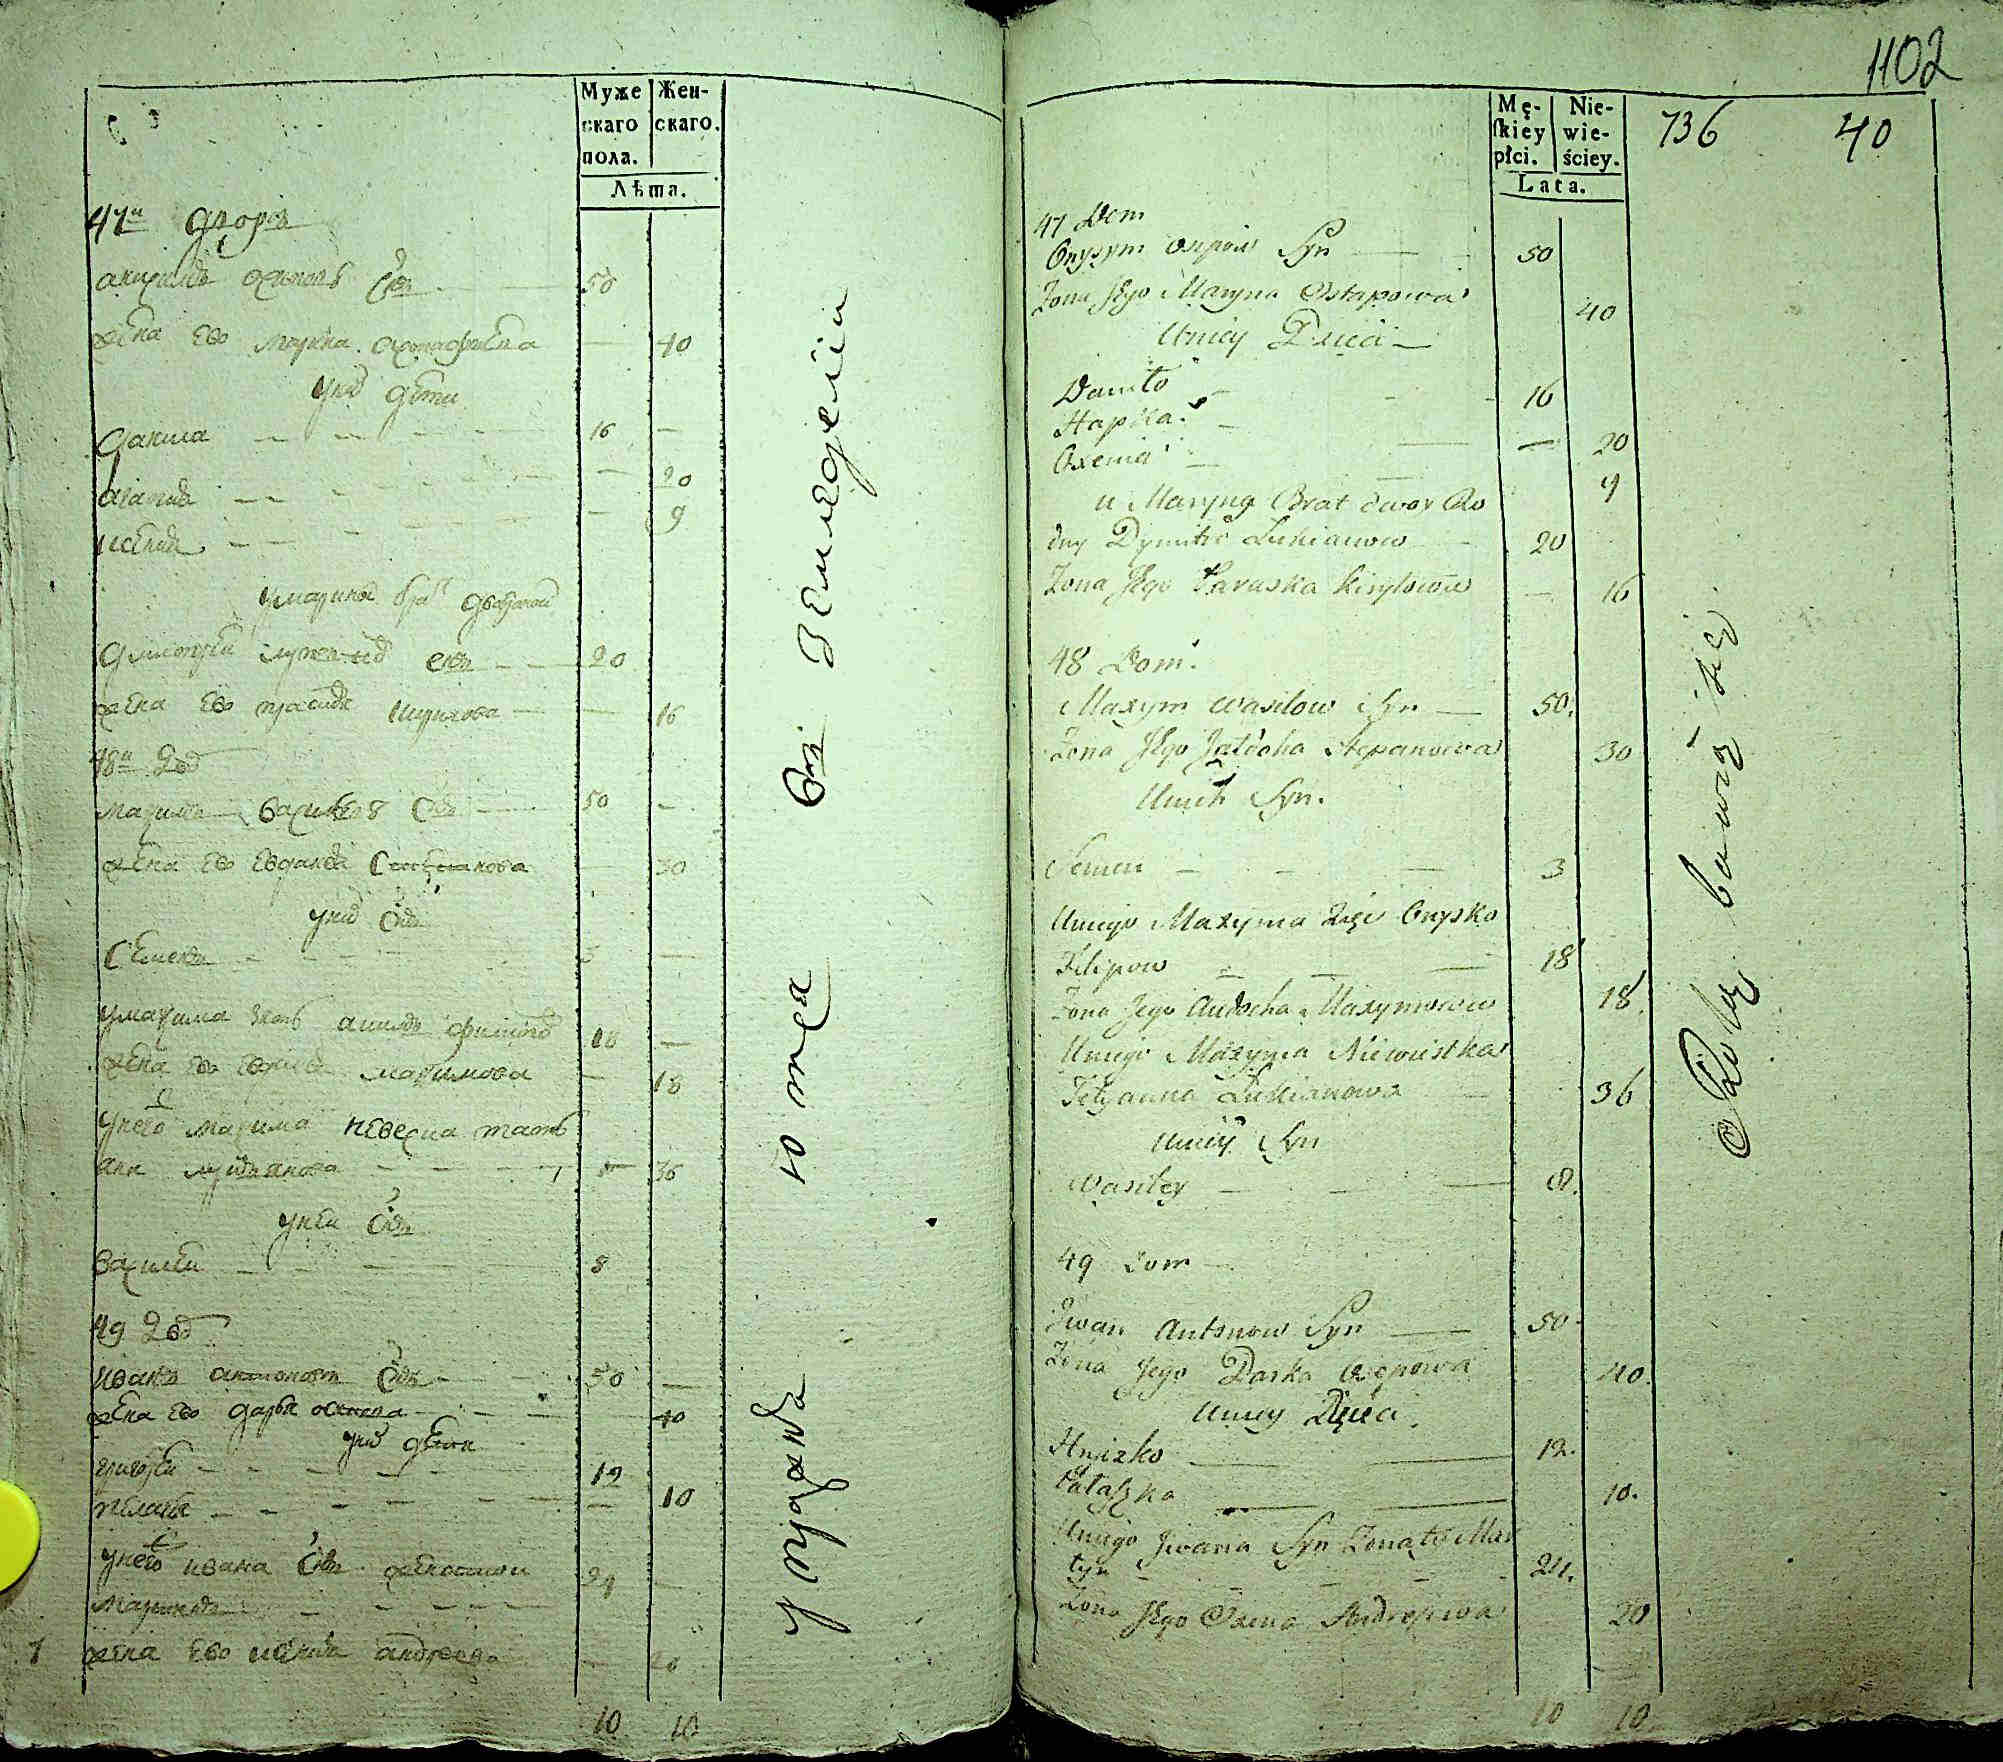 Муже
скаго
пола.
Жен-
скаго.
Лѣта.
47й дворъ
онисимъ осиповъ сынъ 50
жена ево марина остафиева 40
у них дети
данила 16
агапия 20
ксения 9
у марины брат двоюродной
дмитрей лукянов сынъ 20
жена ево прасковя кирилова 16
48й двор
максимъ васильев сынъ 50
жена ево евдокия степанова 30
у них сынъ
семенъ 3
у максима зять анисим филипов 18
жена ево евдокия максимова 18
у него максима невестка татя
ана лукьянова 36
у неи сынъ
василеи 8
49 двор
иванъ антоновъ сынъ 50
жена ево дарья осипова 40
у них дети
григореи 12
пелагея 10
у него ивана сынъ женатои
мартинъ 24
жена ево ксения андреева 20
10 10
упражняются в земледелии
1102
Mę-
skiey
płci.
Nie-
wie-
ściey.
Lata.
736 40
47 Dom
Onysym Osipow Syn 50
Żona Jego Maryna Ostapowa 40
U nich Dzieci
Daniło 16
Hapka 20
Oxenia 9
u Maryny Brat dwoy Ro
dny Dymitr Łukianow 20
Żona Jego Paraska Kiryłowa 16
48 Dom.
Maxym Wasilow Syn 50.
Żona Jego Jałdoha Stepanowa 30
U nich Syn.
Semen 3
U niego Maxyma Zięć Onysko
Filipow 18
Żona Jego Audocha Maxymowa 18.
U niego Maxyma Niewistka
Tetyanna Łukianowa 36
U niey Syn
Wasiley 8.
49 Dom
Iwan Antonow Syn 50.
Żona Jego Darka Osypowa 40.
U nich Dzieci.
Hryzko 12.
Pałaszka 10.
U niego Iwana Syn Żonaty Mar
tyn 24.
Żona Jego Oxena Andrejewa 20
10 10
Rolą bawią się